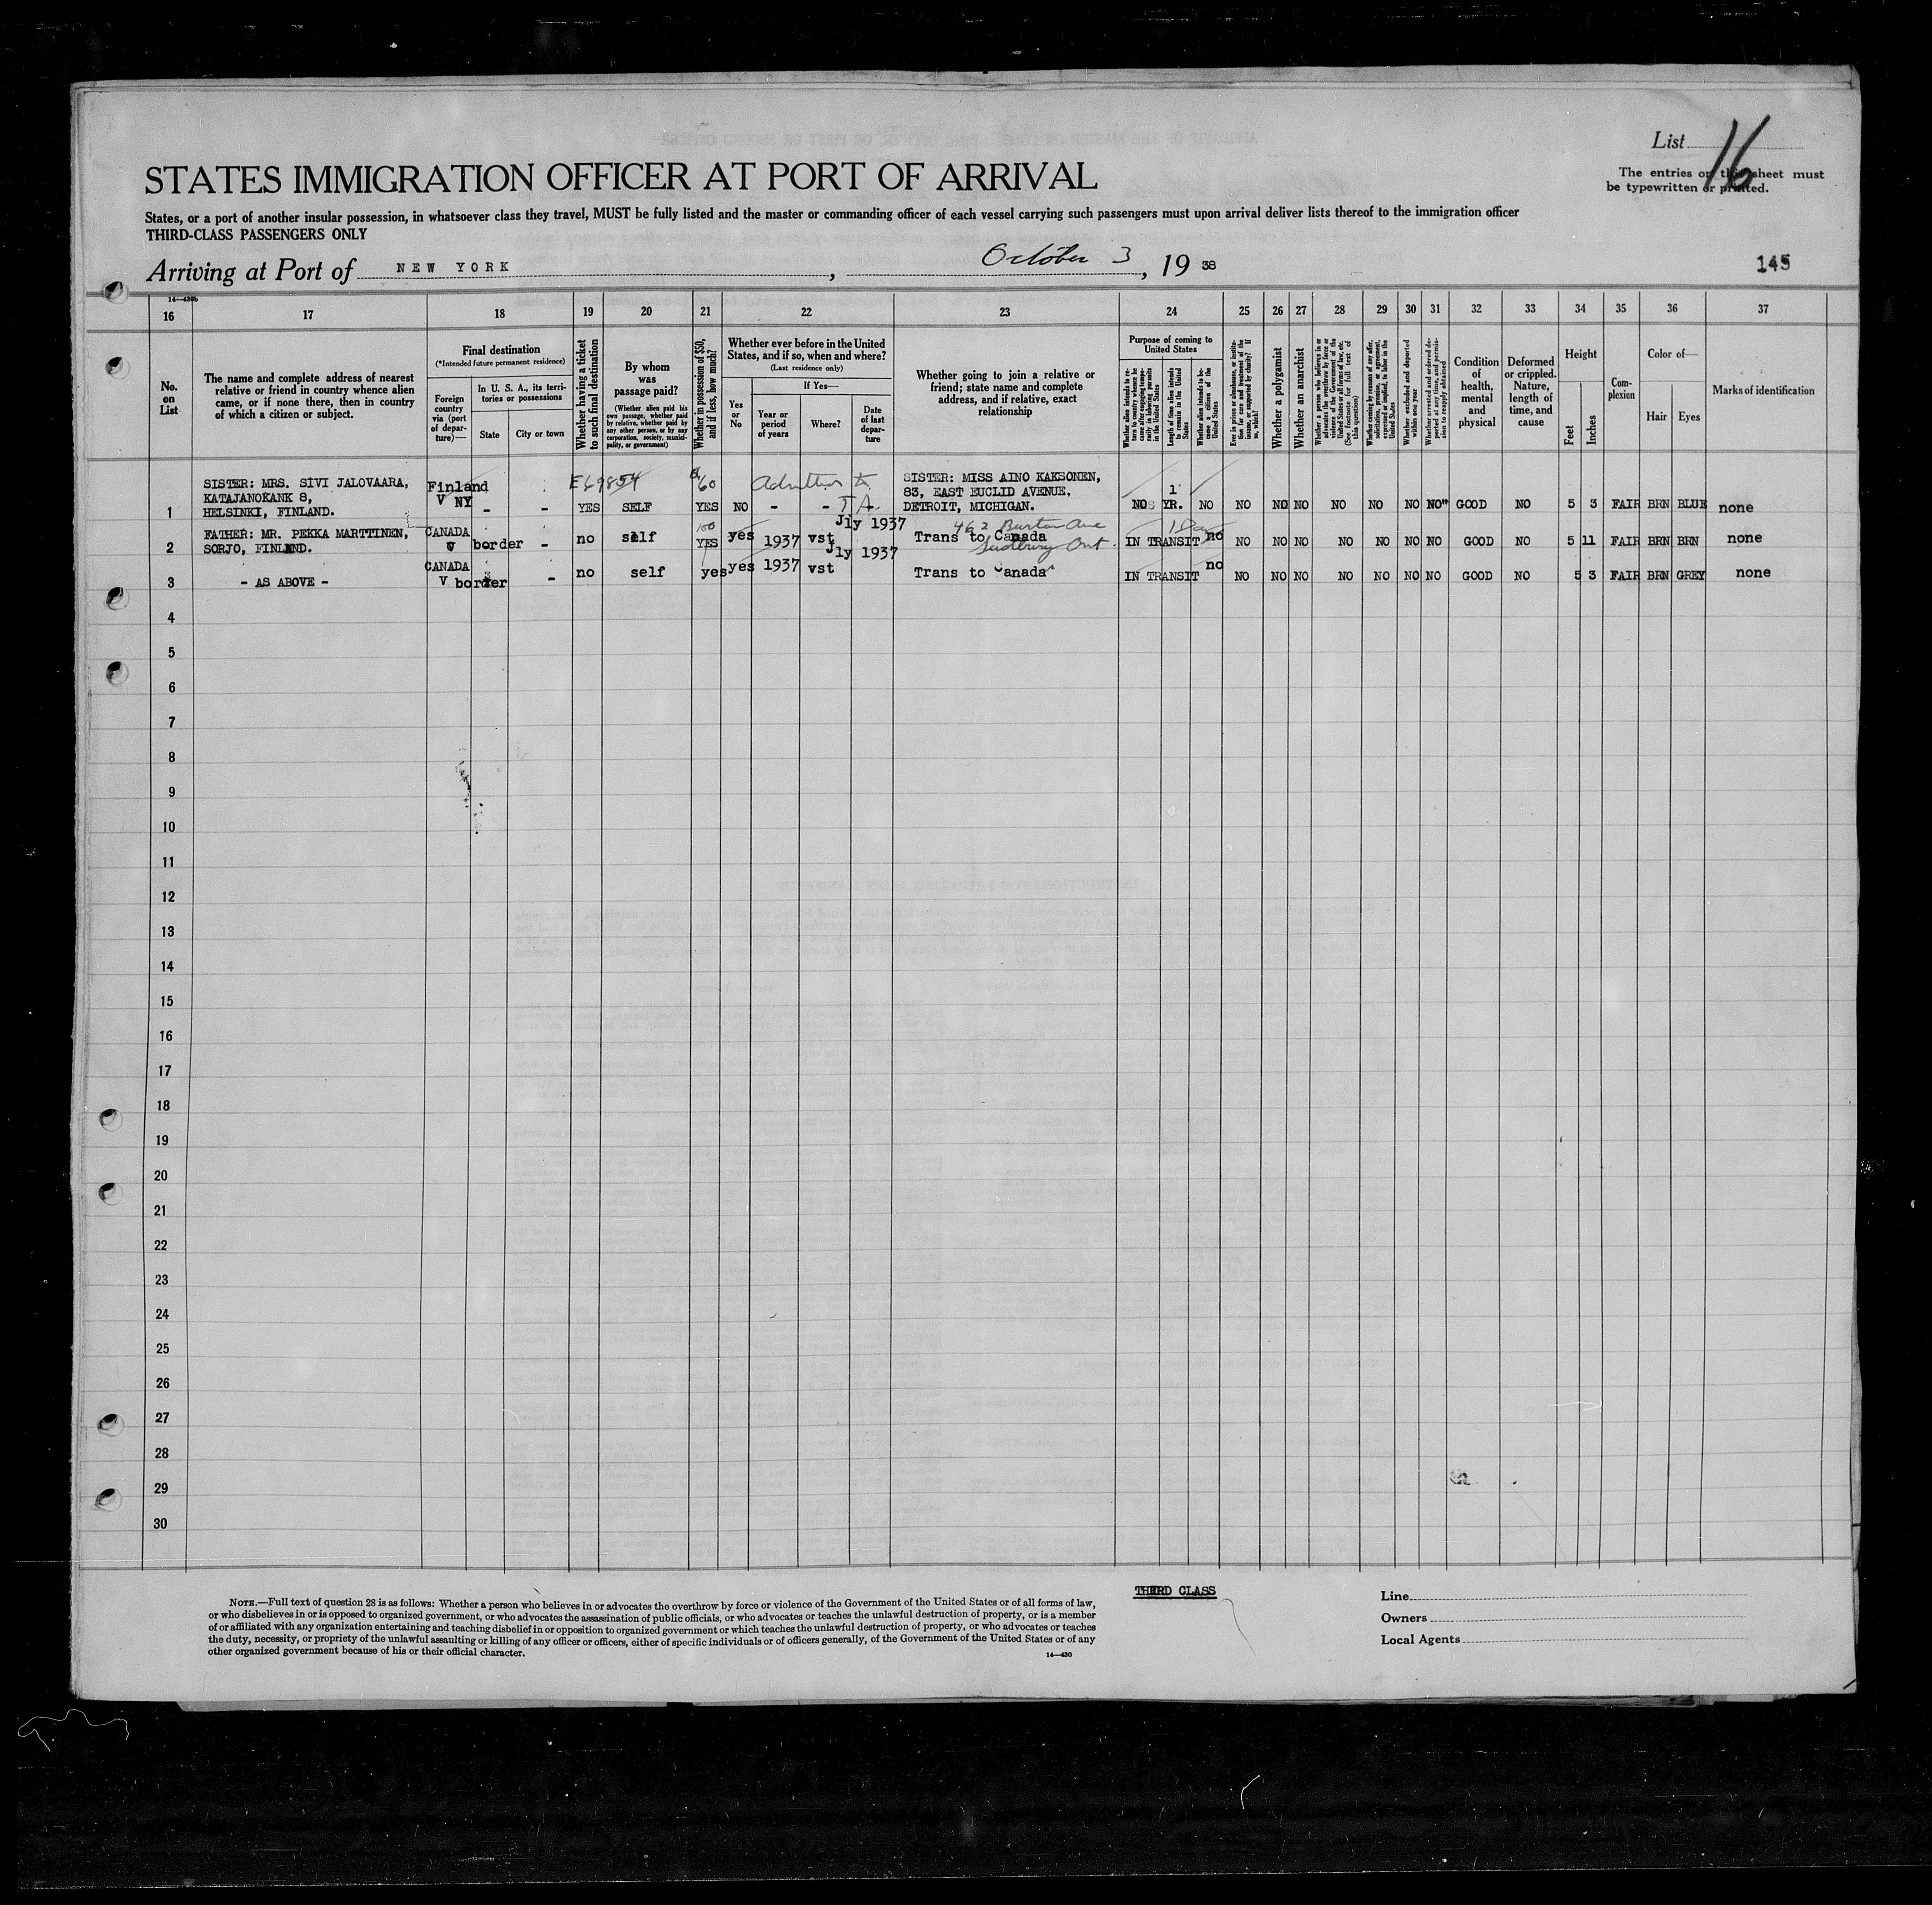 List 16
The entries on this sheet must
be typewritten or printed.
STATES IMMIGRATION OFFICER AT PORT OF ARRIVAL
States, or a port of another insular possession, in whatsoever class they travel, MUST be fully listed and the master or commanding officer of each vessel carrying such passengers must upon arrival deliver lists thereof to the immigration officer
THIRD-CLASS PASSENGERS ONLY
Arriving at Port of NEW YORK, October 3, 19 38
145
14—430b
16 17 18 19 20 21 22 23 24 25 26 27 28 29 30 31 32 33 34 35 36 37
No. on List
The name and complete address of nearest
relative or friend in country whence alien
came, or if none there, then in country
of which a citizen or subject.
Final destination
(*Intended future permanent residence)
Foreign country via (port of departure)—
In U. S. A., its territories or possessions
State
City or town
Whether having a ticket to such final destination
By whom was passage paid?
(Whether alien paid his own passage, whether paid by relative, whether paid by any other person, or by any corporation, society, municipality, or government)
Whether in possession of $50, and if less, how much?
Whether ever before in the United
States, and if so, when and where?
(Last residence only)
Yes or No
If Yes—
Year or period of years
Where?
Date of last departure
Whether going to join a relative or
friend; state name and complete
address, and if relative, exact
relationship
Purpose of coming to United States
Length of time alien intends to remain in the United States
Whether alien intends to become a citizen of the United States
Whether a polygamist
Whether an anarchist
Whether excluded and deported within one year
Condition of health, mental and physical
Deformed or crippled. Nature, length of time, and cause
Height
Feet
Inches
Complexion
Color of—
Hair
Eyes
Marks of identification
1 SISTER: MRS. SIVI JALOVAARA,
KATAJANOKANK 8,
HELSINKI, FINLAND.
Finland
V NY - - E69854 YES SELF 60 YES NO - - T A.
SISTER: MISS AINO KAKSONEN,
83, EAST EUCLID AVENUE,
DETROIT, MICHIGAN.
NO 1 YR. NO NO NO NO NO NO NO NO GOOD NO 5 3 FAIR BRN BLUE none
2 FATHER: MR. PEKKA MARTTINEN,
SORJO, FINLAND.
CANADA
V border - no self 100 YES yes 1937 vst Jly 1937
462 Burton Ave
Trans to Canada
Sudbury Ont.
IN TRANSIT 1 Day no NO NO NO NO NO NO NO GOOD NO 5 11 FAIR BRN BRN none
3 - AS ABOVE -
CANADA
V border - no self yes yes 1937 vst Jly 1937
Trans to Canada
IN TRANSIT no NO NO NO NO NO NO NO GOOD NO 5 3 FAIR BRN GREY none
4
5
6
7
8
9
10
11
12
13
14
15
16
17
18
19
20
21
22
23
24
25
26
27
28
29
30
NOTE.—Full text of question 28 is as follows: Whether a person who believes in or advocates the overthrow by force or violence of the Government of the United States or of all forms of law,
or who disbelieves in or is opposed to organized government, or who advocates the assassination of public officials, or who advocates or teaches the unlawful destruction of property, or is a member
of or affiliated with any organization entertaining and teaching disbelief in or opposition to organized government or which teaches the unlawful destruction of property, or who advocates or teaches
the duty, necessity, or propriety of the unlawful assaulting or killing of any officer or officers, either of specific individuals or of officers generally, of the Government of the United States or of any
other organized government because of his or their official character.
14—430
THIRD CLASS
Line
Owners
Local Agents